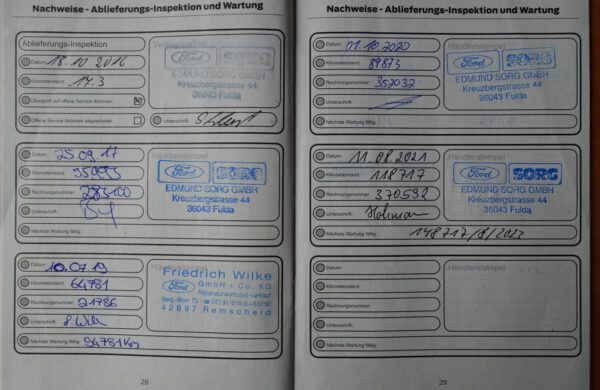 Nachweise - Ablieferungs-Inspektion und Wartung
Ablieferungs-Inspektion
Datum: 18.10.2016
Kilometerstand:
Überprüft auf offene Service Aktionen:
Offene Service Aktionen abgearbeitet:
Unterschrift:
Ford SORG
EDMUND SORG GMBH
Kreuzbergstrasse 44
36043 Fulda
Datum: 25.09.17
Kilometerstand:
Rechnungsnummer:
Unterschrift:
Nächste Wartung fällig:
Händlerstempel
Ford SORG
EDMUND SORG GMBH
Kreuzbergstrasse 44
36043 Fulda
Datum: 10.07.19
Kilometerstand: 64781
Rechnungsnummer: 21786
Unterschrift:
Nächste Wartung fällig: 94781 Km
Händlerstempel
Friedrich Wilke
Ford GmbH + Co. KG
Reparaturwerkstatt-Verkauf
42897 Remscheid
28
Nachweise - Ablieferungs-Inspektion und Wartung
Datum: 01.10.2020
Kilometerstand: 89873
Rechnungsnummer: 352032
Unterschrift:
Nächste Wartung fällig:
Händlerstempel
Ford SORG
EDMUND SORG GMBH
Kreuzbergstrasse 44
36043 Fulda
Datum: 11.08.2021
Kilometerstand: 118717
Rechnungsnummer: 370592
Unterschrift:
Nächste Wartung fällig: 148717/8/2023
Händlerstempel
Ford SORG
EDMUND SORG GMBH
Kreuzbergstrasse 44
36043 Fulda
Datum:
Kilometerstand:
Rechnungsnummer:
Unterschrift:
Nächste Wartung fällig:
Händlerstempel
29